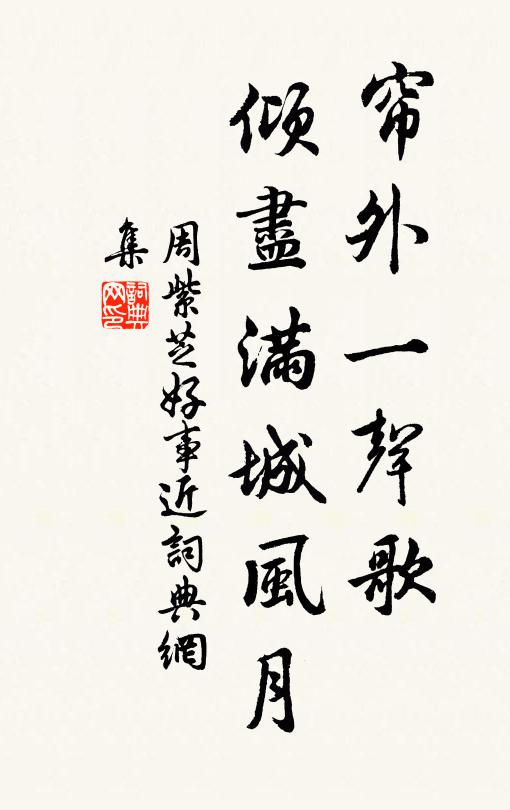 帘外一聲歌
傾盡滿城風月
周紫芝好事近詞典網
集
詞典
网印